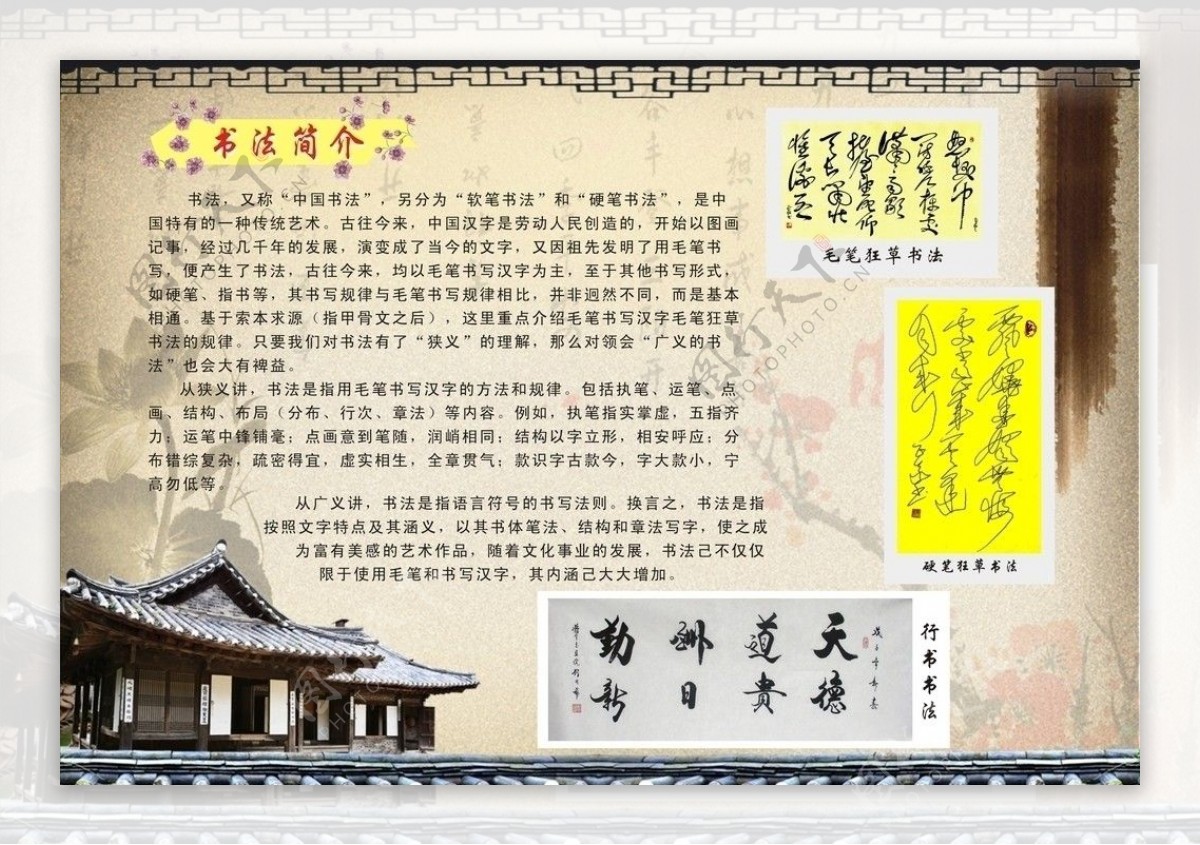 书法简介
书法，又称“中国书法”，另分为“软笔书法”和“硬笔书法”，是中
国特有的一种传统艺术。古往今来，中国汉字是劳动人民创造的，开始以图画
记事，经过几千年的发展，演变成了当今的文字，又因祖先发明了用毛笔书
写，便产生了书法，古往今来，均以毛笔书写汉字为主，至于其他书写形式，
如硬笔、指书等，其书写规律与毛笔书写规律相比，并非迥然不同，而是基本
相通。基于索本求源（指甲骨文之后），这里重点介绍毛笔书写汉字毛笔狂草
书法的规律。只要我们对书法有了“狭义”的理解，那么对领会“广义的书
法”也会大有裨益。
从狭义讲，书法是指用毛笔书写汉字的方法和规律。包括执笔、运笔、点
画、结构、布局（分布、行次、章法）等内容。例如，执笔指实掌虚，五指齐
力；运笔中锋铺毫；点画意到笔随，润峭相同；结构以字立形，相安呼应；分
布错综复杂，疏密得宜，虚实相生，全章贯气；款识字古款今，字大款小，宁
高勿低等。
从广义讲，书法是指语言符号的书写法则。换言之，书法是指
按照文字特点及其涵义，以其书体笔法、结构和章法写字，使之成
为富有美感的艺术作品，随着文化事业的发展，书法己不仅仅
限于使用毛笔和书写汉字，其内涵己大大增加。
毛笔狂草书法
硬笔狂草书法
天德
道贵
酬日
勤新
行书书法